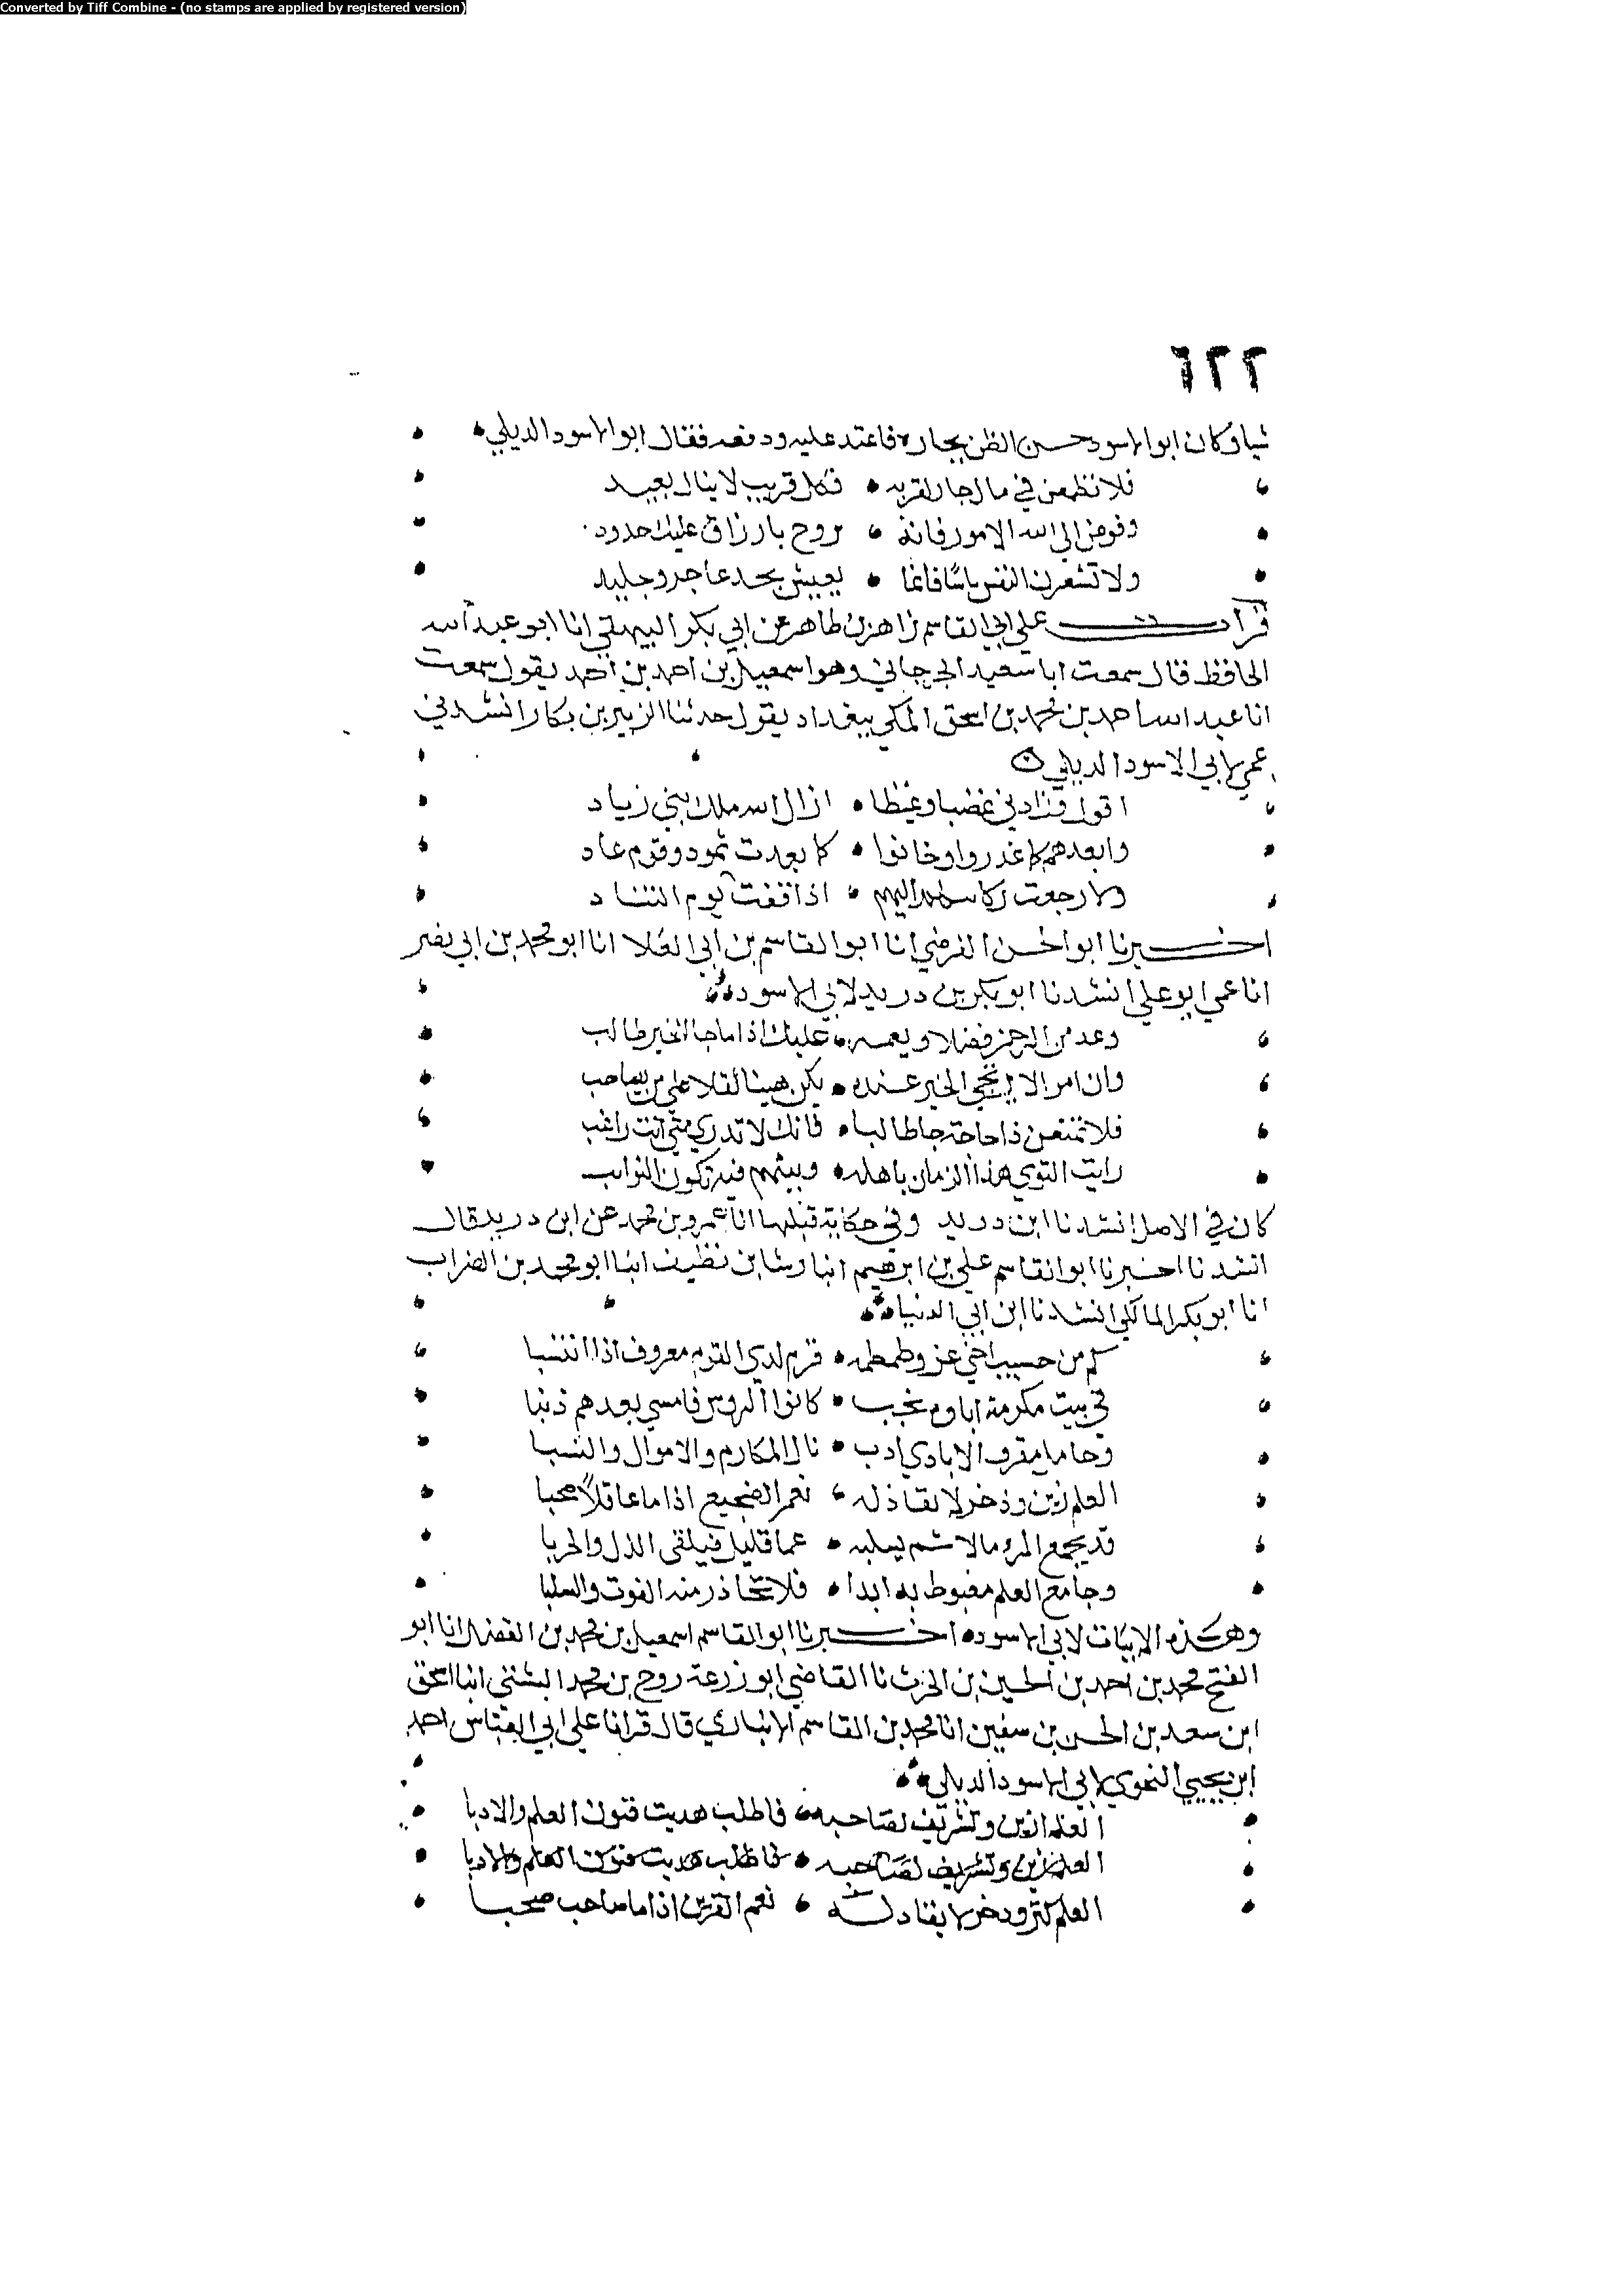 Converted by Tiff Combine - (no stamps are applied by registered version)
٦٢٢
شيا وكان ابو الاسود حسن الظن بجاره فاعتد عليه ودفعه فقال ابو الاسود الديلي
فلا تطمعن في مال جار لقربه فكل قريب لا ينال بعيد
وفوض الى الله الامور فانه يروح بارزاق عليك حدود
ولا تشعرن النفس ياسا فانما يعيش بجد عاجز وجليد
قرات على ابي القاسم زاهر بن طاهر عن ابي بكر البيهقي انا ابو عبد الله
الحافظ قال سمعت ابا سعيد الجرجاني وهو اسمعيل بن احمد بن احمد يقول سمعت
انا عبد الله احمد بن محمد بن اسحق المكي ببغداد يقول حدثنا الزبير بن بكار انشدني
عمي لابي الاسود الديلي
اقول وزادني غضبا وغيظا ازال الله ملك بني زياد
وابعدهم كما غدروا وخانوا كما بعدت ثمود وقوم عاد
ولا رجعت ركابهم اليهم اذا قفت يوم التناد
اخبرنا ابو الحسن الفرضي انا ابو القاسم بن ابي العلا انا ابو محمد بن ابي نصر
انا عمي ابو علي انشدنا ابو بكر بن دريد لابي الاسود
وعد من الرحمن فضلا ونعمه عليك اذا ما جا للخير طالب
وان امرا لا يرتجى الخير عنده يكن هينا ثقلا على من يصاحب
فلا تمنعن ذا حاجة جا طالبا فانك لا تدري متى انت راغب
رايت التوى هذا الزمان باهله وبينهم فيه تكون النوايب
كان في الاصل انشدنا ابن دريد وفي حكاية قبلها انا عمرو بن محمد عن ابن دريد قال
انشدنا اخبرنا ابو القاسم علي بن ابرهيم انبا رشا بن نظيف انبا ابو محمد بن الضراب
انا ابو بكر المالكي انشدنا ابن ابي الدنيا
كم من حسيب اخي عز وطمطمه قزم لدى القوم معروف اذا انتسبا
في بيت مكرمة اباوه نجب كانوا الروس فامسى بعدهم ذنبا
وخامل مقرف الابا ذي ادب نال المكارم والاموال والنسبا
العلم زين وذخر لا نفاذ له نعم الضجيع اذا ما عاقلا صحبا
قد يجمع المرؤ مالا ثم يسلبه عما قليل فيلقى الذل والحربا
وجامع العلم مغبوط به ابدا فلا تحاذر منه الفوت والسلبا
وهكذه الابيات لابي الاسود اخبرنا ابو القاسم اسمعيل بن محمد بن الفضل انا ابو
الفتح محمد بن احمد بن الحسين بن الحرث نا القاضي ابو زرعة روح بن محمد السني انبا اسحق
ابن سعد بن الحسن بن سفين انا محمد بن القاسم الانباري قال قرانا على ابي العباس احمد
ابن يحيى النحوي لابي الاسود الديلي
العلم زين وتشريف لصاحبه فاطلب هديت فنون العلم والادبا
العلم زين وتشريف لصاحبه فاطلب هديت فنون العلم والادبا
العلم كنز وذخر لا نفاد له نعم القرين اذا ما صاحب صحبا